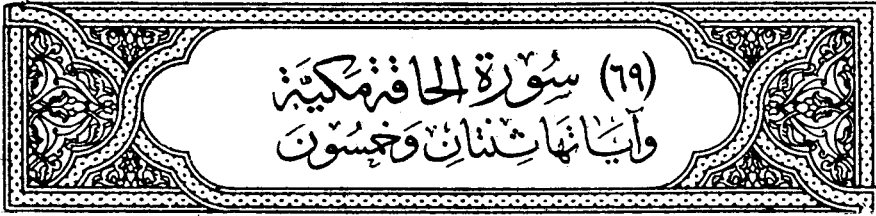 (٦٩) سُورَة الحَاقة مَكيَّة
وَآيَاتهَا ثِنتَانِ وَخمسُونَ